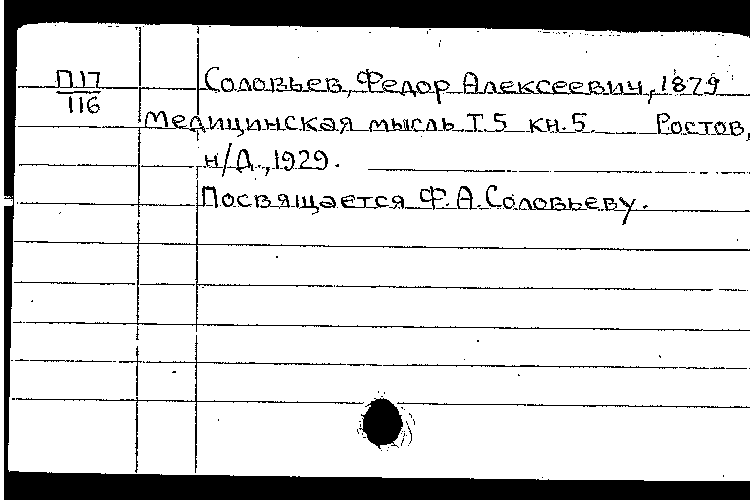 П17
116
Соловьев, Федор Алексеевич, 1879
Медицинская мысль Т.5 кн.5. Ростов,
н/Д., 1929.
Посвящается Ф.А.Соловьеву.